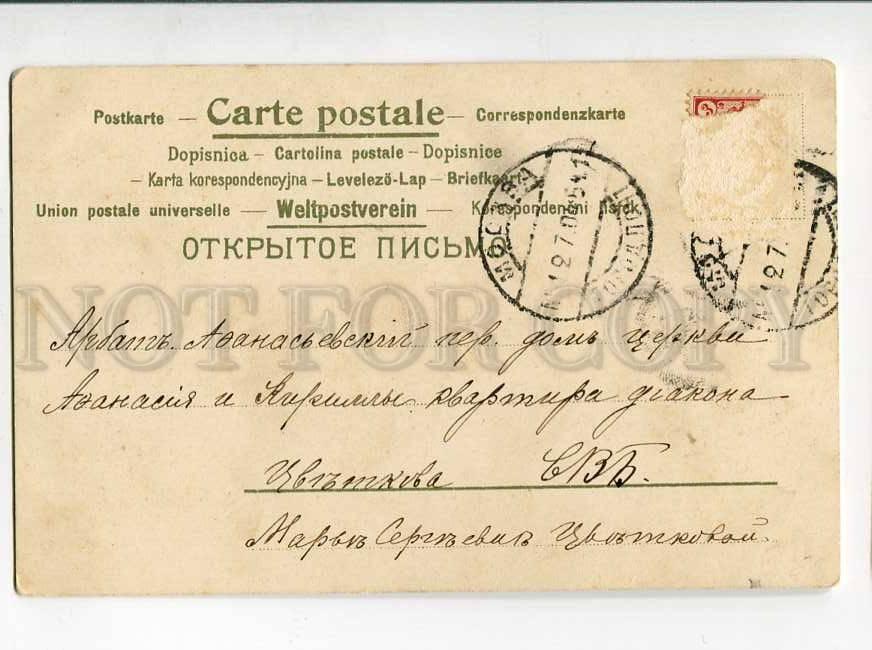 Postkarte – Carte postale – Correspondenzkarte
Dopisnica – Cartolina postale – Dopisnice
– Karta korespondencyjna – Levelező-Lap – Briefkaart
Union postale universelle – Weltpostverein – Korespondencni listek
ОТКРЫТОЕ ПИСЬМО
МОСКВА
NOT FOR COPY
Арбатъ. Аѳанасьевскій пер. домъ церкви
Аѳанасія и Кириллы квартира діакона
Цвѣткова СВБ.
Марьѣ Сергѣевнѣ Цвѣтковой.